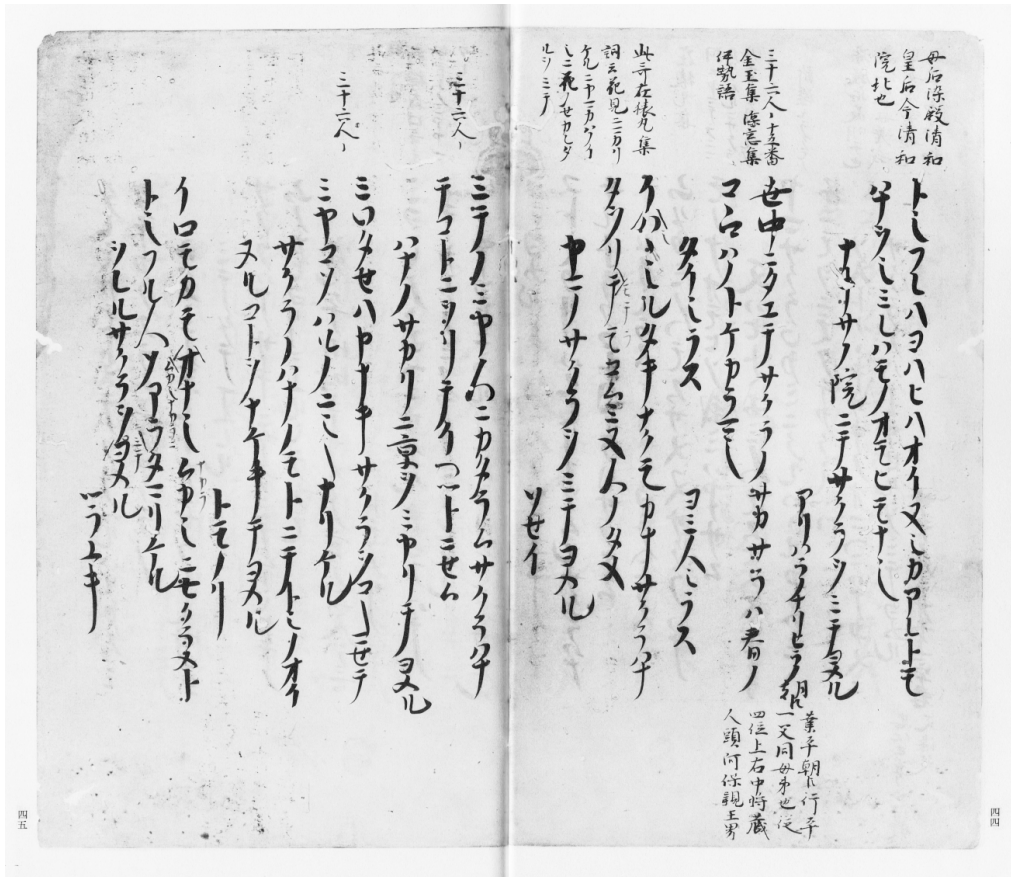 母后染殿清和
皇后今清和
院北也
トシフレハヨハヒハオイヌシカアレトモ
ハナヲシミレハモノオモヒモナシ
ナキサノ院ニテサクラヲミテヨメル
アリハラノナリヒラノ朝臣
業平朝臣行平
一父同母弟也従
四位上右中将蔵
人頭阿保親王男
三十六人、十五番
金玉集
伊勢語
世中ニタエテサクラノサカサラハ春ノ
コヽロハノトケカラマシ
タイシラス
ヨミ人シラス
此哥在
詞云花見ニマカリ
イハヽシルタキナクモカナサクラハナ
タヲリテモコムミヌ人ノタメ
ヤマノサクラヲミテヨメル
ソセイ
三十六人、
ミテノミヤ人ニカタラムサクラハナ
テコトニヲリテイヘツトニセム
ハナノサカリニ京ヲミヤリテヨメル
ミワタセハヤナキサクラヲコキマセテ
三十六人、
ミヤコソハルノニシキナリケル
サクラノハナノモトニテトシノオイ
ヌルコトヲナケキテヨメル
トモノリ
イロモカモオナシムカシニサクラメト
トシフル人ソアラタマリケル
ヲレルサクラヲヨメル
ツラユキ
四四
四五